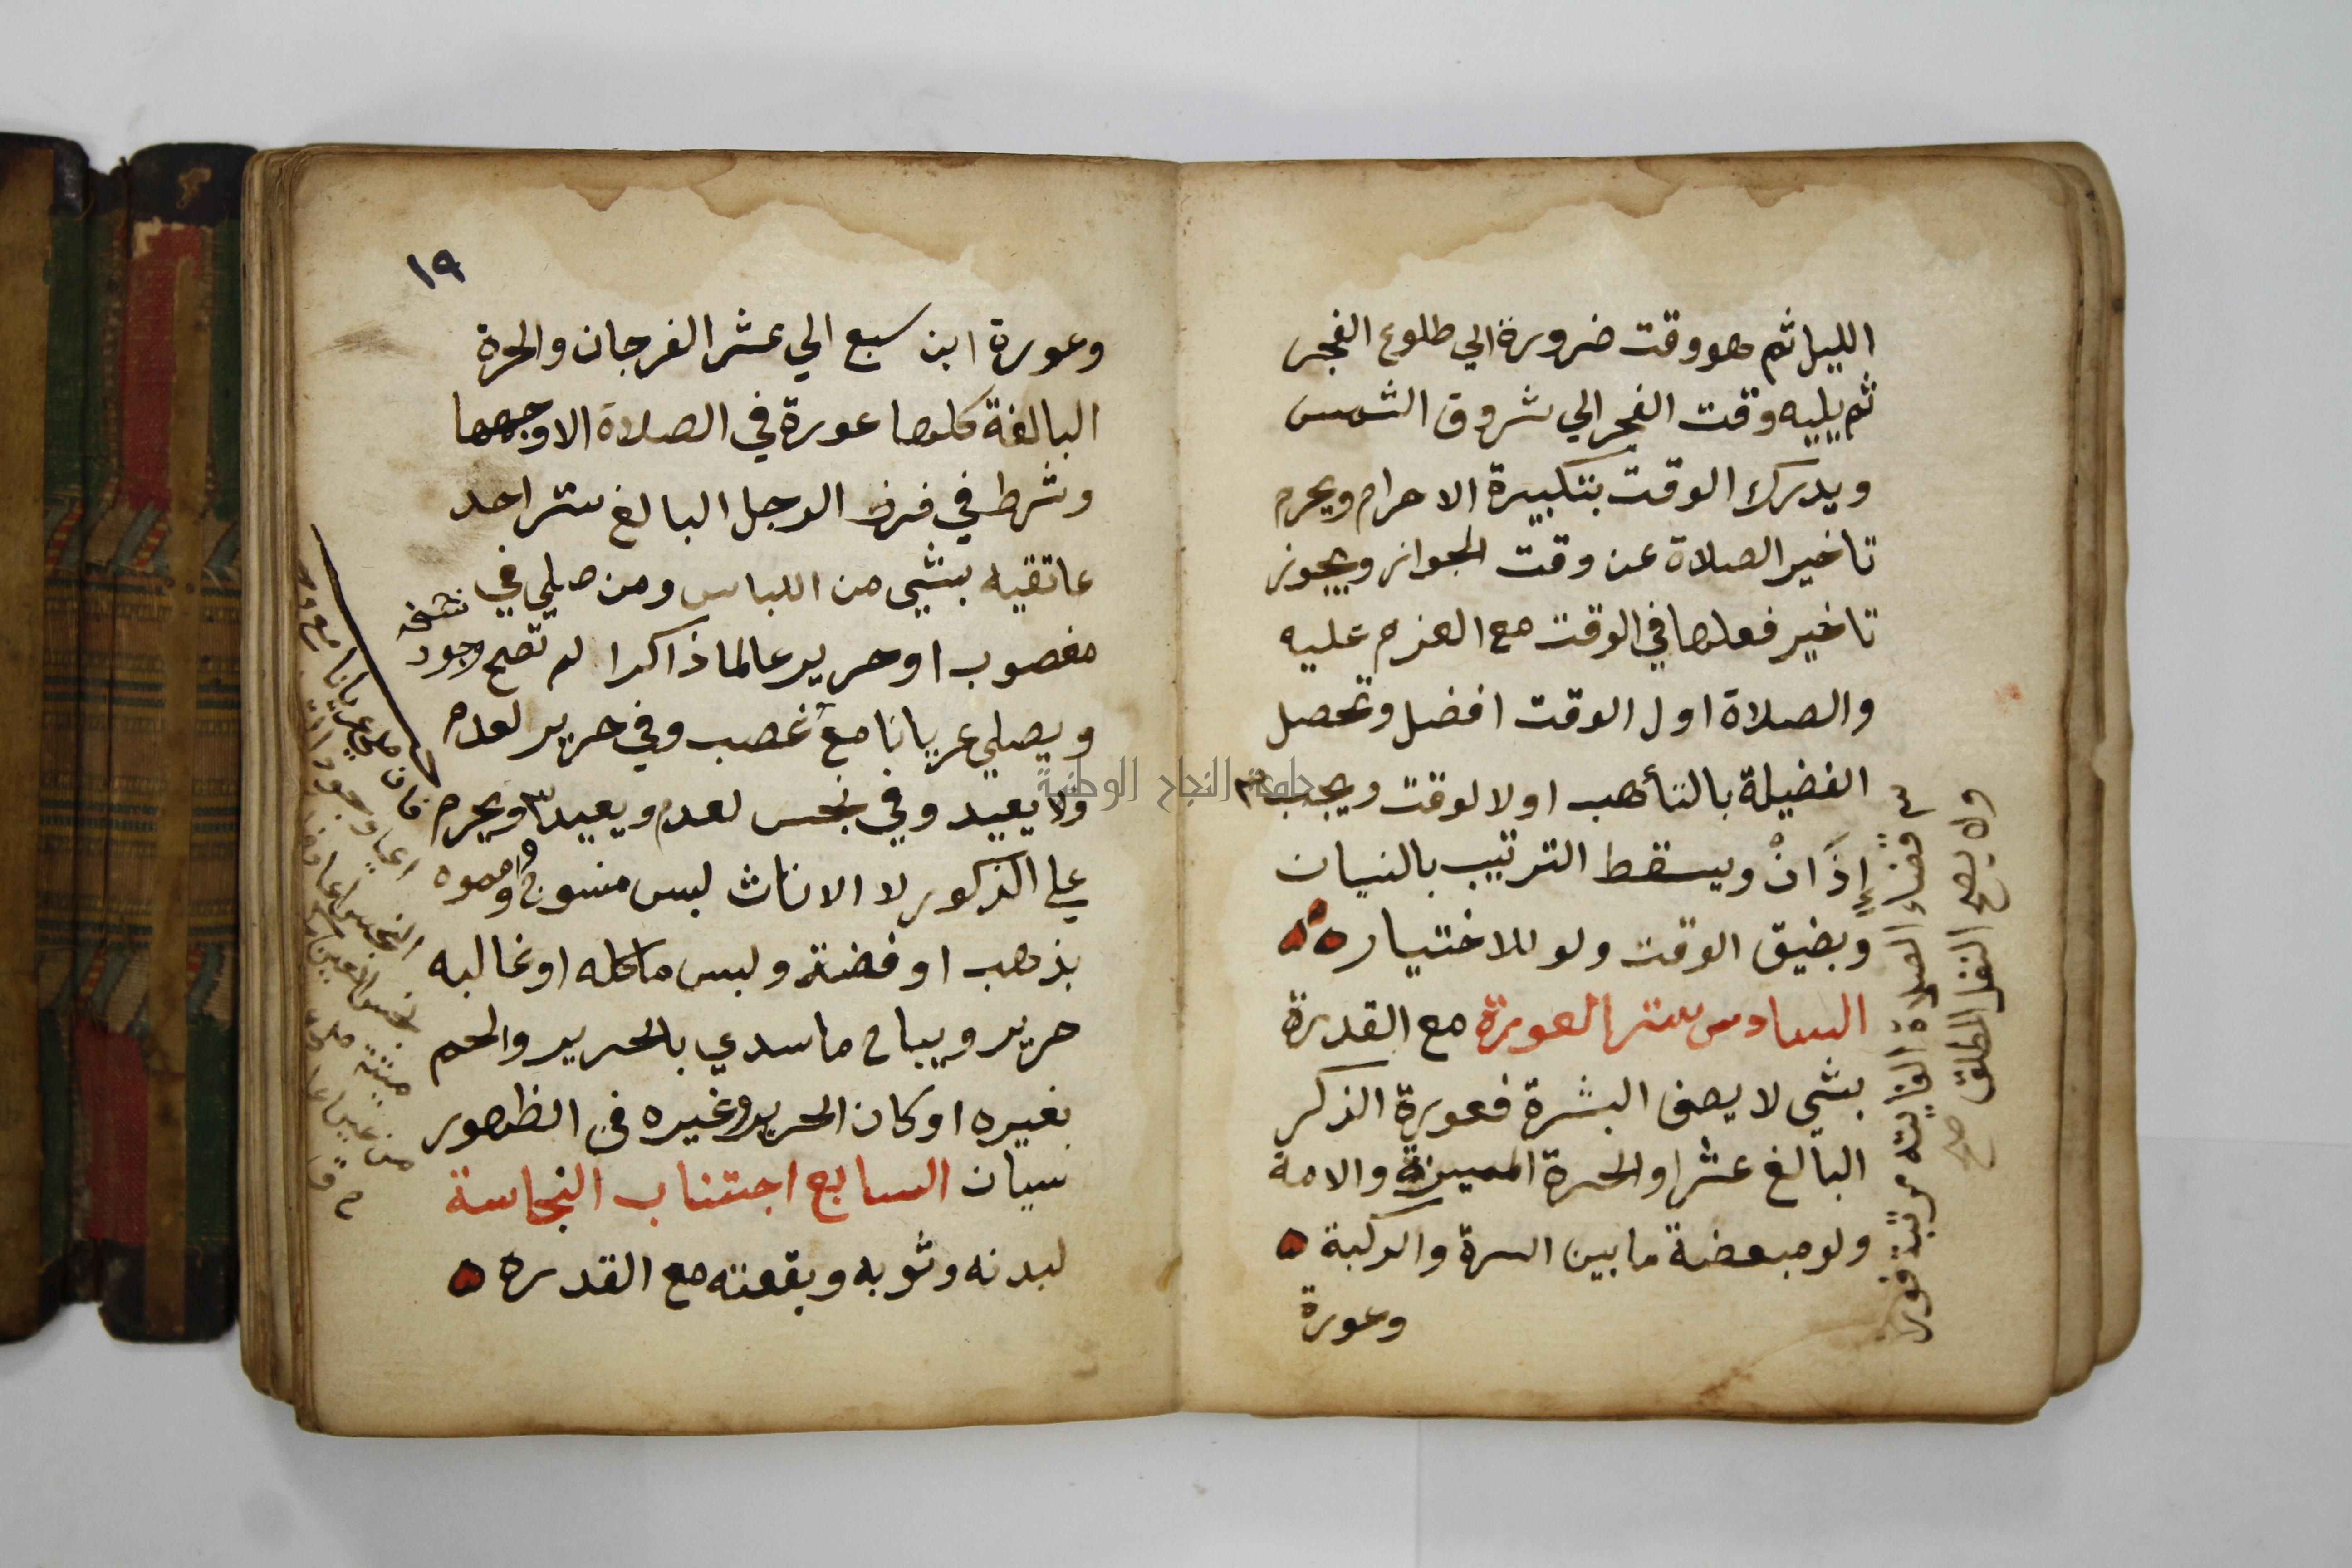 الليل ثم هو وقت ضرورة الي طلوع الفجر
ثم يليه وقت الفجر الي شروق الشمس
ويدرك الوقت بتكبيرة الاحرام ويحرم
تاخير الصلاة عن وقت الجواز ويجوز
تاخير فعلها في الوقت مع العزم عليه
والصلاة اول الوقت افضل وتحصل
الفضيلة بالتأهب اول الوقت ويجب
إذَانْ ويسقط الترتيب بالنسيان
وبضيق الوقت ولو للاختيار ه
السادس ستر العورة مع القدرة
بشي لا يصف البشرة فعورة الذكر
البالغ عشرا والحرة المميزة والامة
ولو مبعضة ما بين السرة والركبة ه
وعورة
قضاء الصلاة الفائتة مرتبة فورا
ولا يصح النفل المطلق صح
١٩
وعورة ابن سبع الي عشر الفرجان والحرة
البالغة كلها عورة في الصلاة الا وجهها
وشرط في فرض الرجل البالغ ستر احد
عاتقيه بشي من اللباس ومن صلي في
مغصوب او حرير عالما ذاكرا لم تصح وجود
ويصلي عريانا مع غصب وفي حرير لعدم
ولا يعيد وفي نجس لعدم ويعيد ويحرم
علي الذكور لا الاناث لبس منسوج ومموه
بذهب او فضة ولبس ما كله او غالبه
حرير ويباح ما سدي بالحرير والحم
بغيره او كان الحرير وغيره في الظهور
سيان السابع اجتناب النجاسة
لبدنه وثوبه وبقعته مع القدرة ه
جامعة النجاح الوطنية